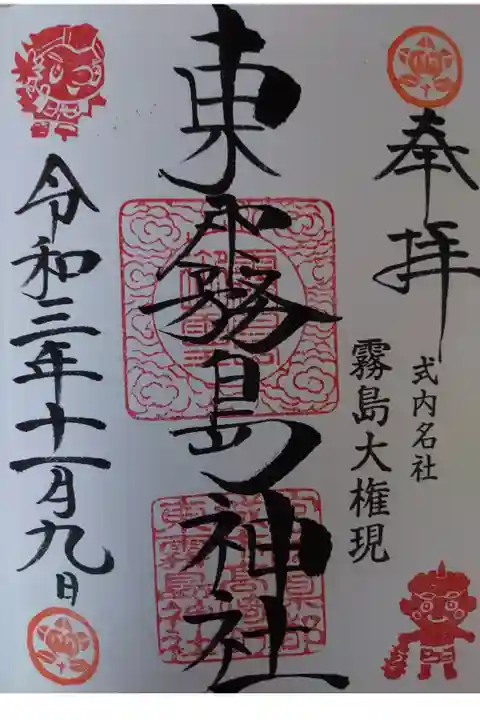 奉拝
式内名社
霧島大権現
東霧島神社
令和三年十一月九日